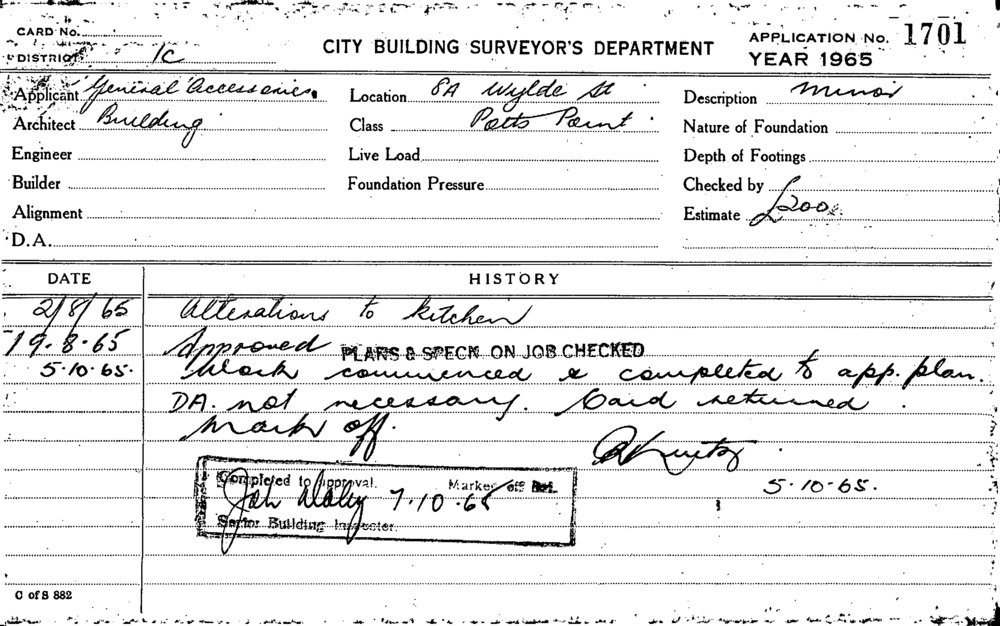 CARD No.
CITY BUILDING SURVEYOR'S DEPARTMENT
APPLICATION No. 1701
DISTRICT 1C
YEAR 1965
Applicant General Accessories
Location 8A Wylde St
Description Minor
Architect Building
Class Potts Point
Nature of Foundation
Engineer
Live Load
Depth of Footings
Builder
Foundation Pressure
Checked by
Alignment
Estimate £200
D.A.
DATE HISTORY
2/8/65 Alterations to kitchen
19.8.65 Approved PLANS & SPECN ON JOB CHECKED
5.10.65. Work commenced & completed to app. plan.
DA. not necessary. Card returned.
Mark off.
5-10-65.
Completed to approval. Marked off
7.10.65
Senior Building Inspector.
C of S 882